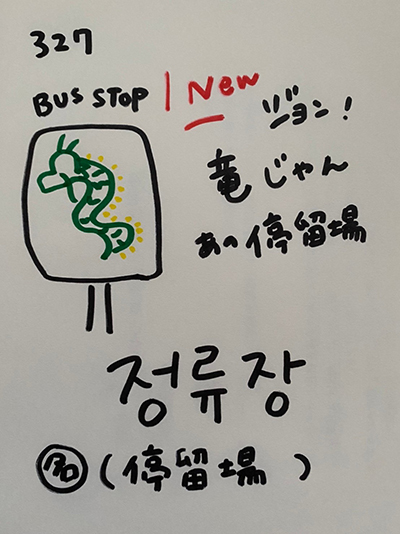 327
BUS STOP | New
ジョン!
竜じゃん
あの停留場
정류장
名(停留場)